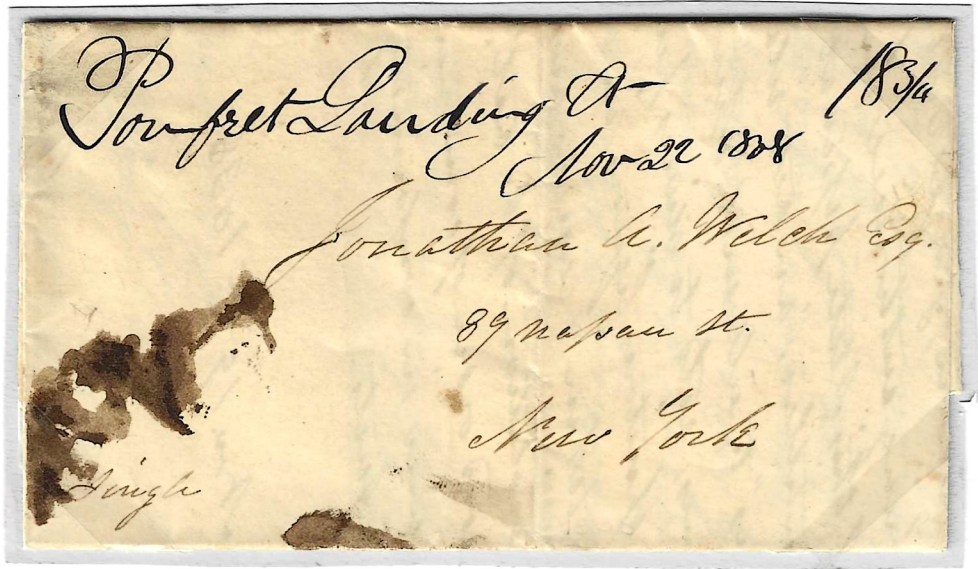 Pomfret Landing Ct
18 3/4
Nov 22 1838
Jonathan A. Welch Esq.
89 Naſsau St.
New York
Single